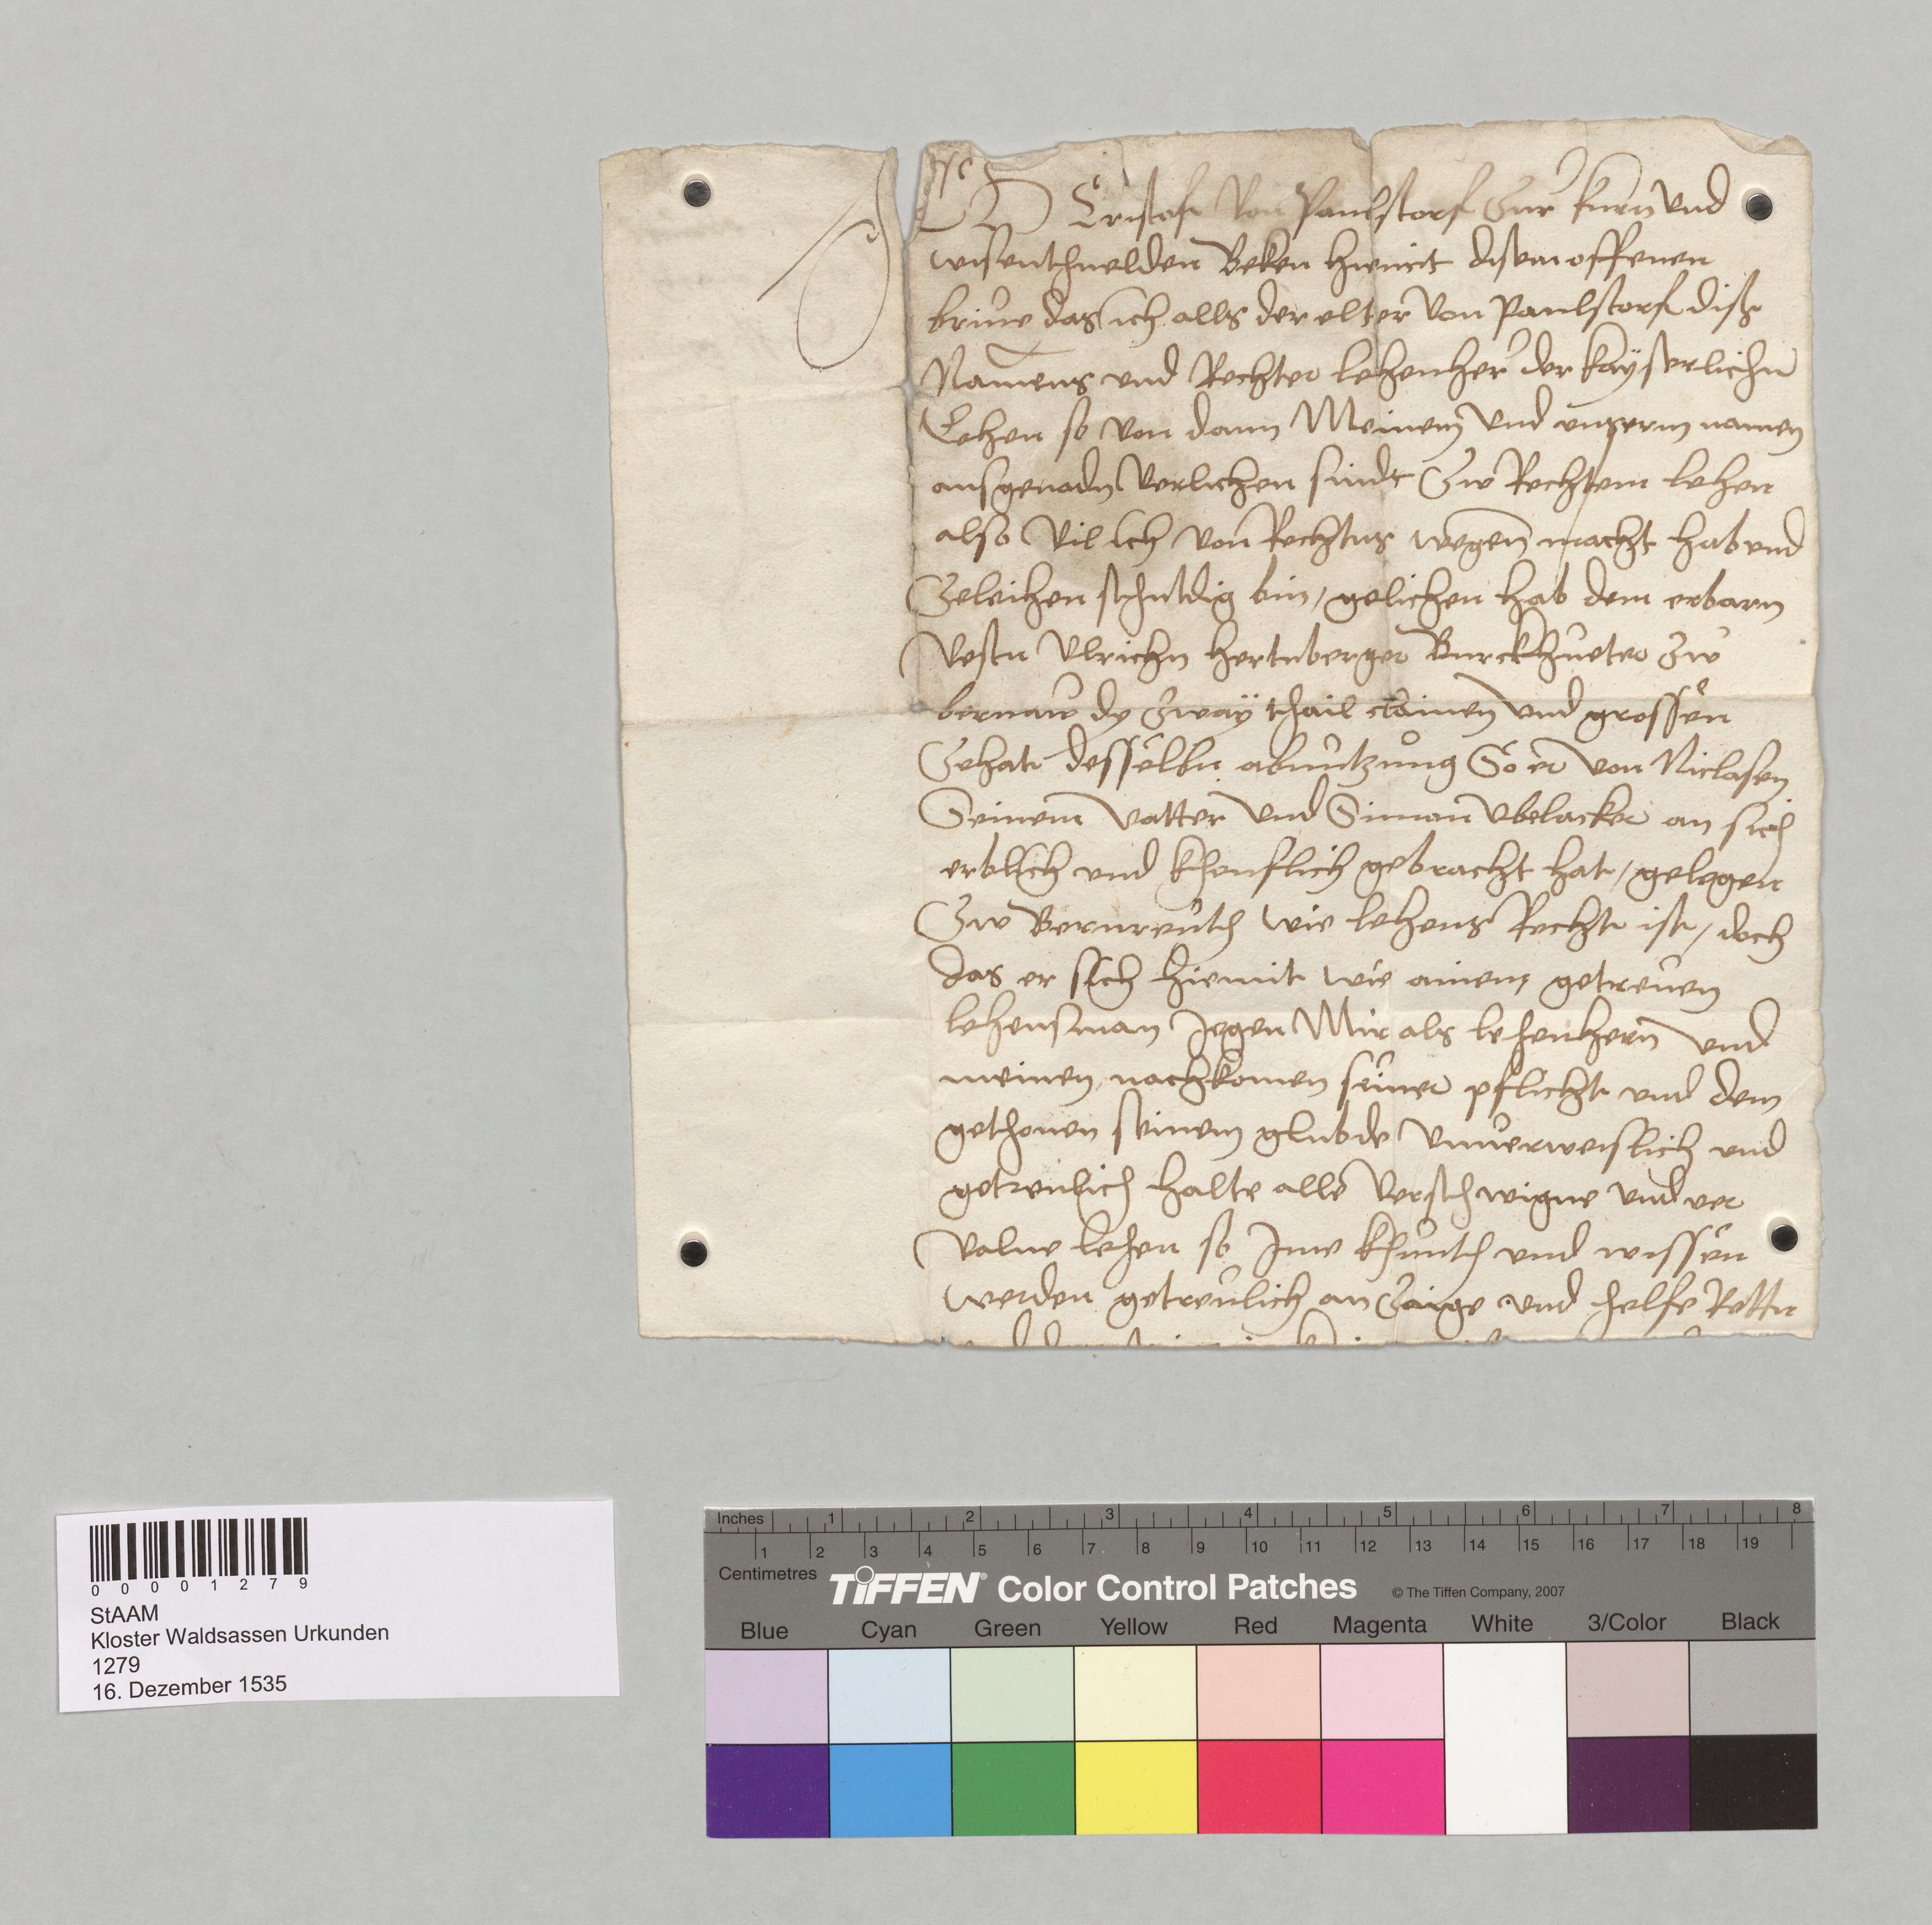 Ich Cristoff Von Paulstorf Zur kurn Vnd
wisenthuelden Beken hiemit disem offenen
brive das ich alls der elter Von Paulstorf diß
Namens vnd Rechter lehenher der kayserlichn
Lehen so von dann Meinem Vnd vnserm namen
ausgenadn Verlichen sindt Zw Rechtem lehen
also Vil Ich Von Rechtns wegen macht hab vnd
Zeleihen schuldig bin / gelichen hab dem erbarn
Vestn Vlrichn hertnberger Burckhueter Zw
bernaw dy Zway thail clainen Vnd grossen
Zehat desselbn abnutzung So er Von Niclasen
Seinem Vatter Vnd Siman Vbelacker an sich
erblich vnd kheuflich gebracht hat / gelegen
Zw Bernreuth Wie lehens Recht ist / doch
das er sich hiemit wie ainem getreuen
lehensman Jegen Mir als lehenhern vnd
meinen nachkomen seiner pflicht vnd dem
gethonen seinem glubde Vnuerweislich vnd
getreulich halte alle Verschwigne Vnd ver
Valne lehen so Jme khunth vnd wissen
werden getreulich an Zaige vnd helfe Rettn
0 0 0 0 1 2 7 9
StAAM
Kloster Waldsassen Urkunden
1279
16. Dezember 1535
Inches 1 2 3 4 5 6 7 8
1 2 3 4 5 6 7 8 9 10 11 12 13 14 15 16 17 18 19
Centimetres
TIFFEN® Color Control Patches © The Tiffen Company, 2007
Blue Cyan Green Yellow Red Magenta White 3/Color Black